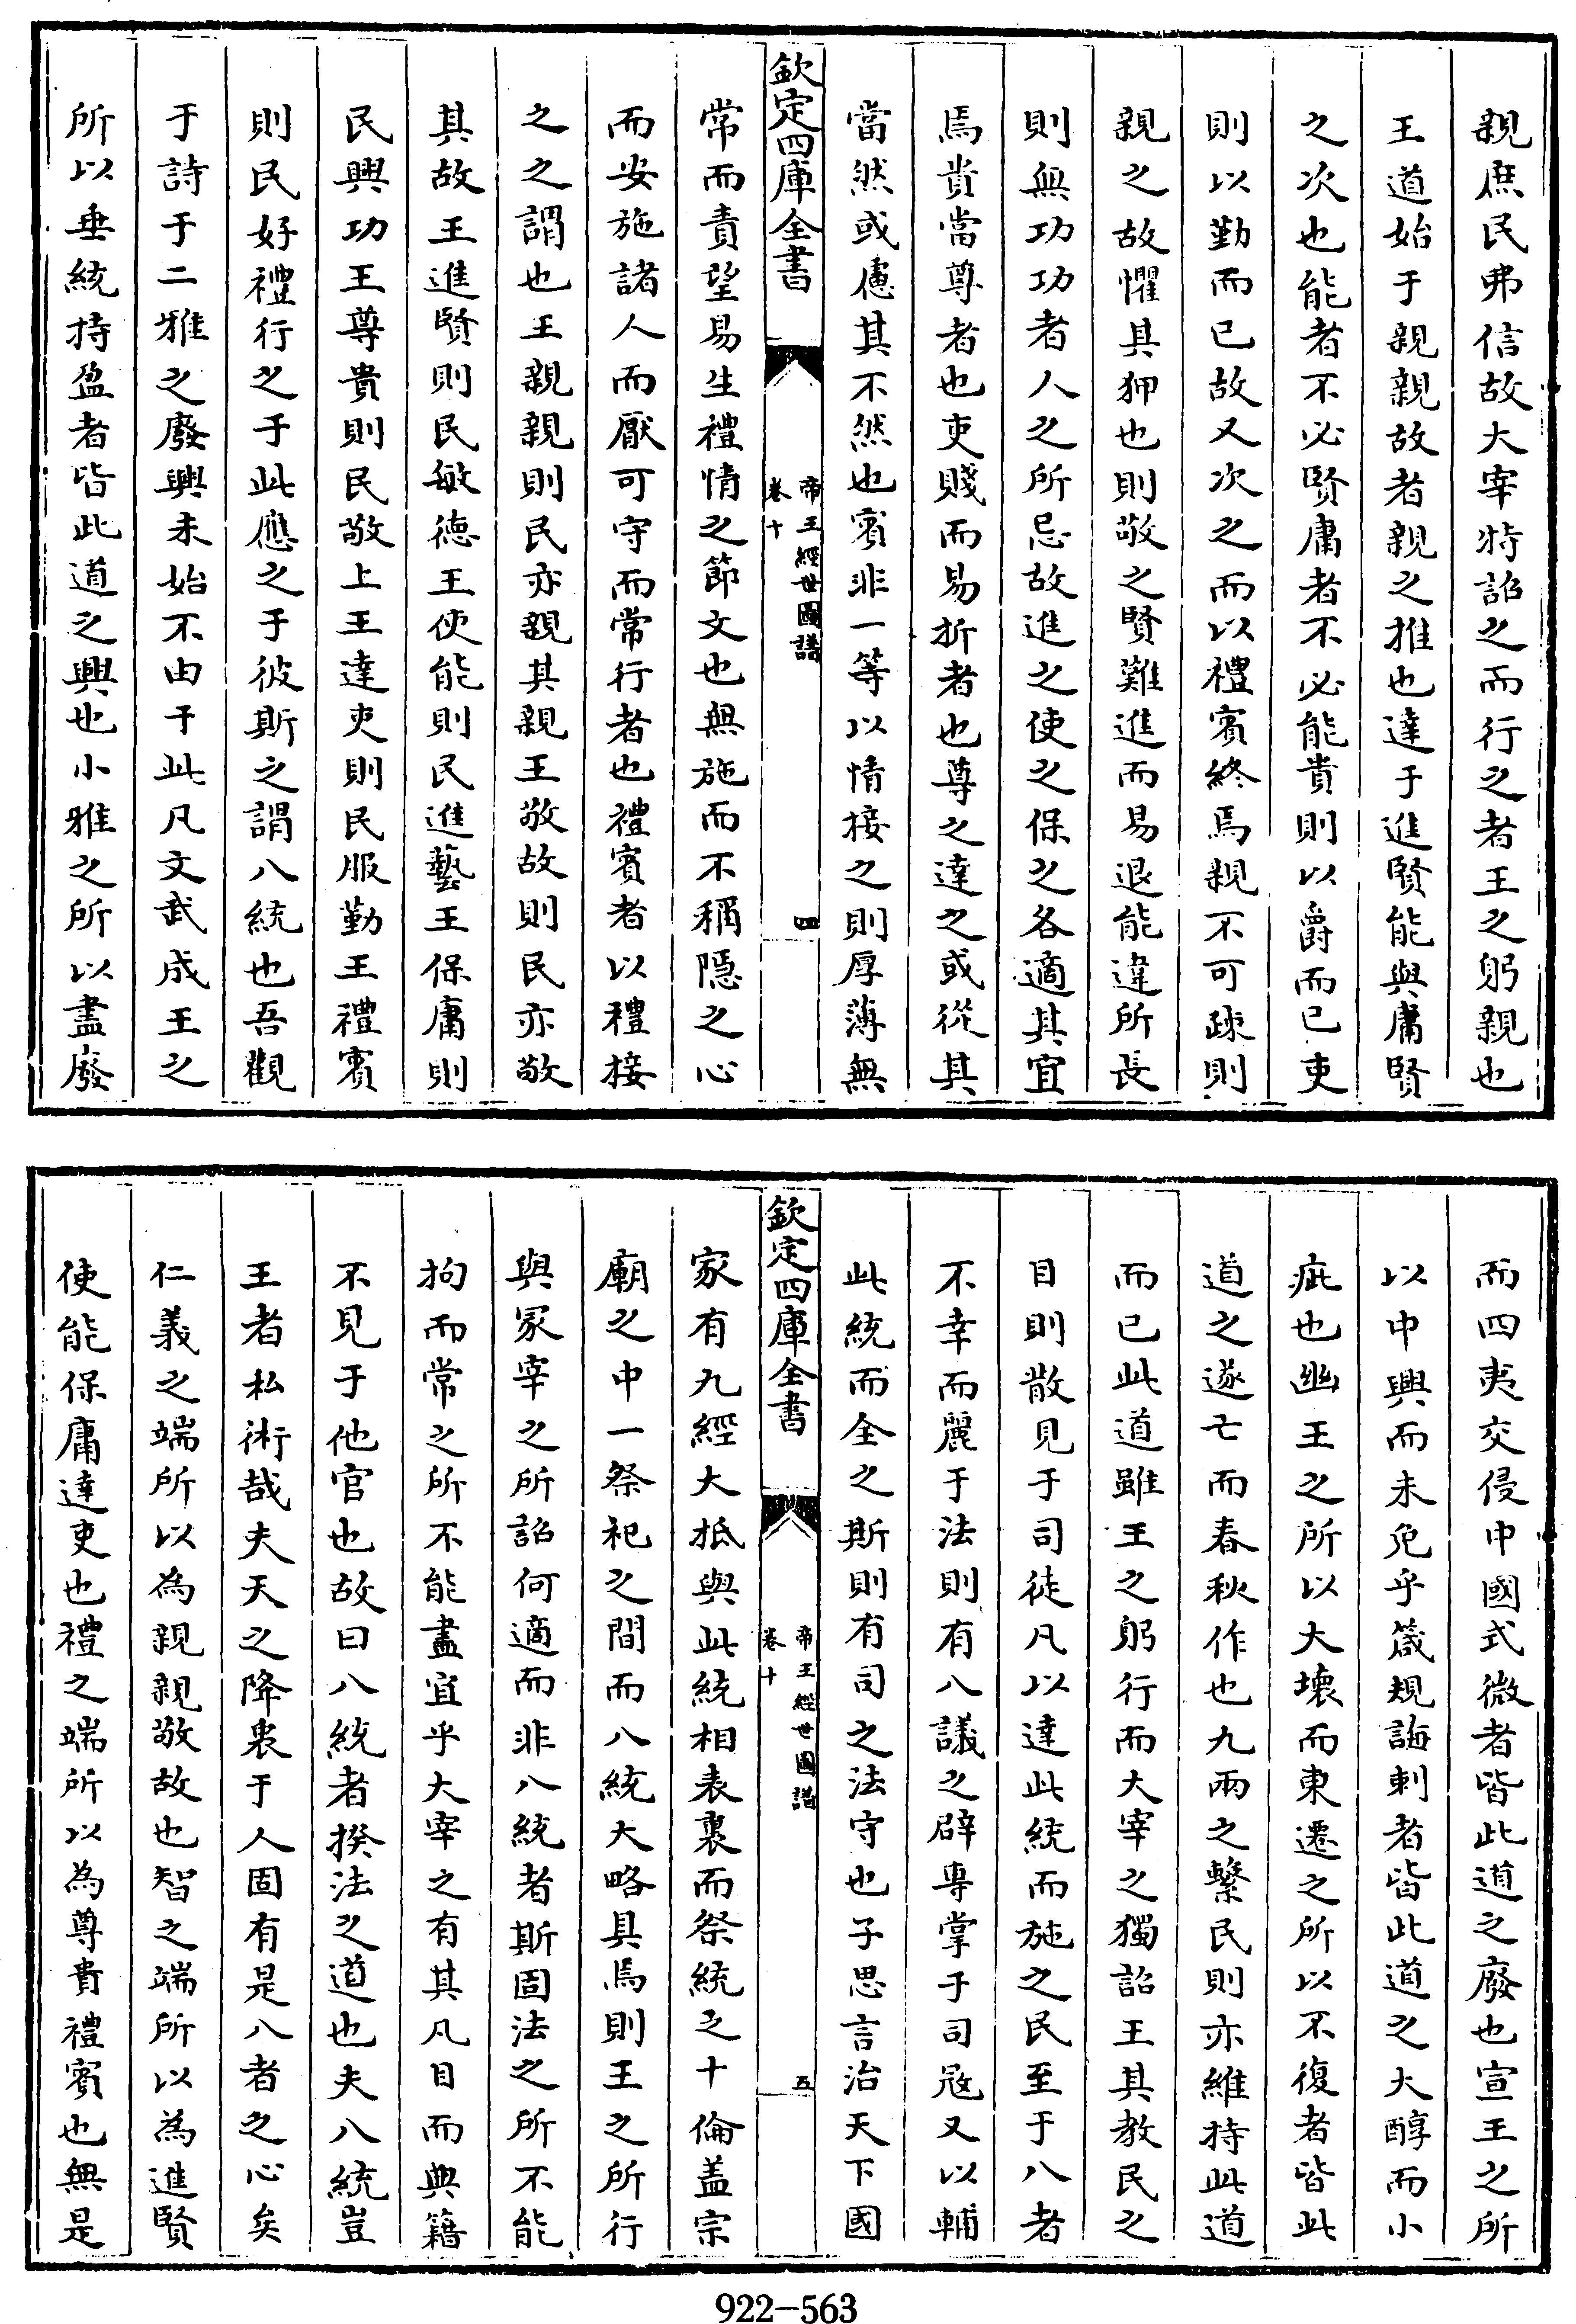 親庶民弗信故大宰特詔之而行之者王之躬親也
王道始于親親故者親之推也達于進賢能與庸賢
之次也能者不必賢庸者不必能貴則以爵而已吏
則以勤而已故又次之而以禮賓終焉親不可疎則
親之故懼其狎也則敬之賢難進而易退能違所長
則無功功者人之所忌故進之使之保之各適其宜
焉貴當尊者也吏賤而易折者也尊之達之或從其
當然或慮其不然也賓非一等以情接之則厚薄無
欽定四庫全書
帝王經世圖譜
卷十
四
常而責望易生禮情之節文也無施而不稱隱之心
而安施諸人而厭可守而常行者也禮賓者以禮接
之之謂也王親親則民亦親其親王敬故則民亦敬
其故王進賢則民敏德王使能則民進藝王保庸則
民興功王尊貴則民敬上王達吏則民服勤王禮賓
則民好禮行之于此應之于彼斯之謂八統也吾觀
于詩于二雅之廢興未始不由于此凡文武成王之
所以垂統持盈者皆此道之興也小雅之所以盡廢
而四夷交侵中國式微者皆此道之廢也宣王之所
以中興而未免乎箴規誨刺者皆此道之大醇而小
疵也幽王之所以大壞而東遷之所以不復者皆此
道之遂亡而春秋作也九兩之繫民則亦維持此道
而已此道雖王之躬行而大宰之獨詔王其教民之
目則散見于司徒凡以達此統而施之民至于八者
不幸而麗于法則有八議之辟專掌于司寇又以輔
此統而全之斯則有司之法守也子思言治天下國
欽定四庫全書
帝王經世圖譜
卷十
五
家有九經大抵與此統相表裏而祭統之十倫蓋宗
廟之中一祭祀之間而八統大略具焉則王之所行
與冢宰之所詔何適而非八統者斯固法之所不能
拘而常之所不能盡宜乎大宰之有其凡目而典籍
不見于他官也故曰八統者揆法之道也夫八統豈
王者私術哉夫天之降衷于人固有是八者之心矣
仁義之端所以為親親敬故也智之端所以為進賢
使能保庸達吏也禮之端所以為尊貴禮賓也無是
922-563